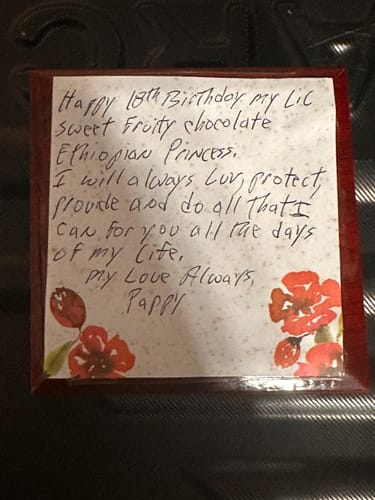 Happy 18th Birthday my Lil
sweet Fruity chocolate
Ethiopian Princess.
I will always Luv, protect,
Provide and do all that I
can for you all the days
of my life.
My Love Always,
Pappy